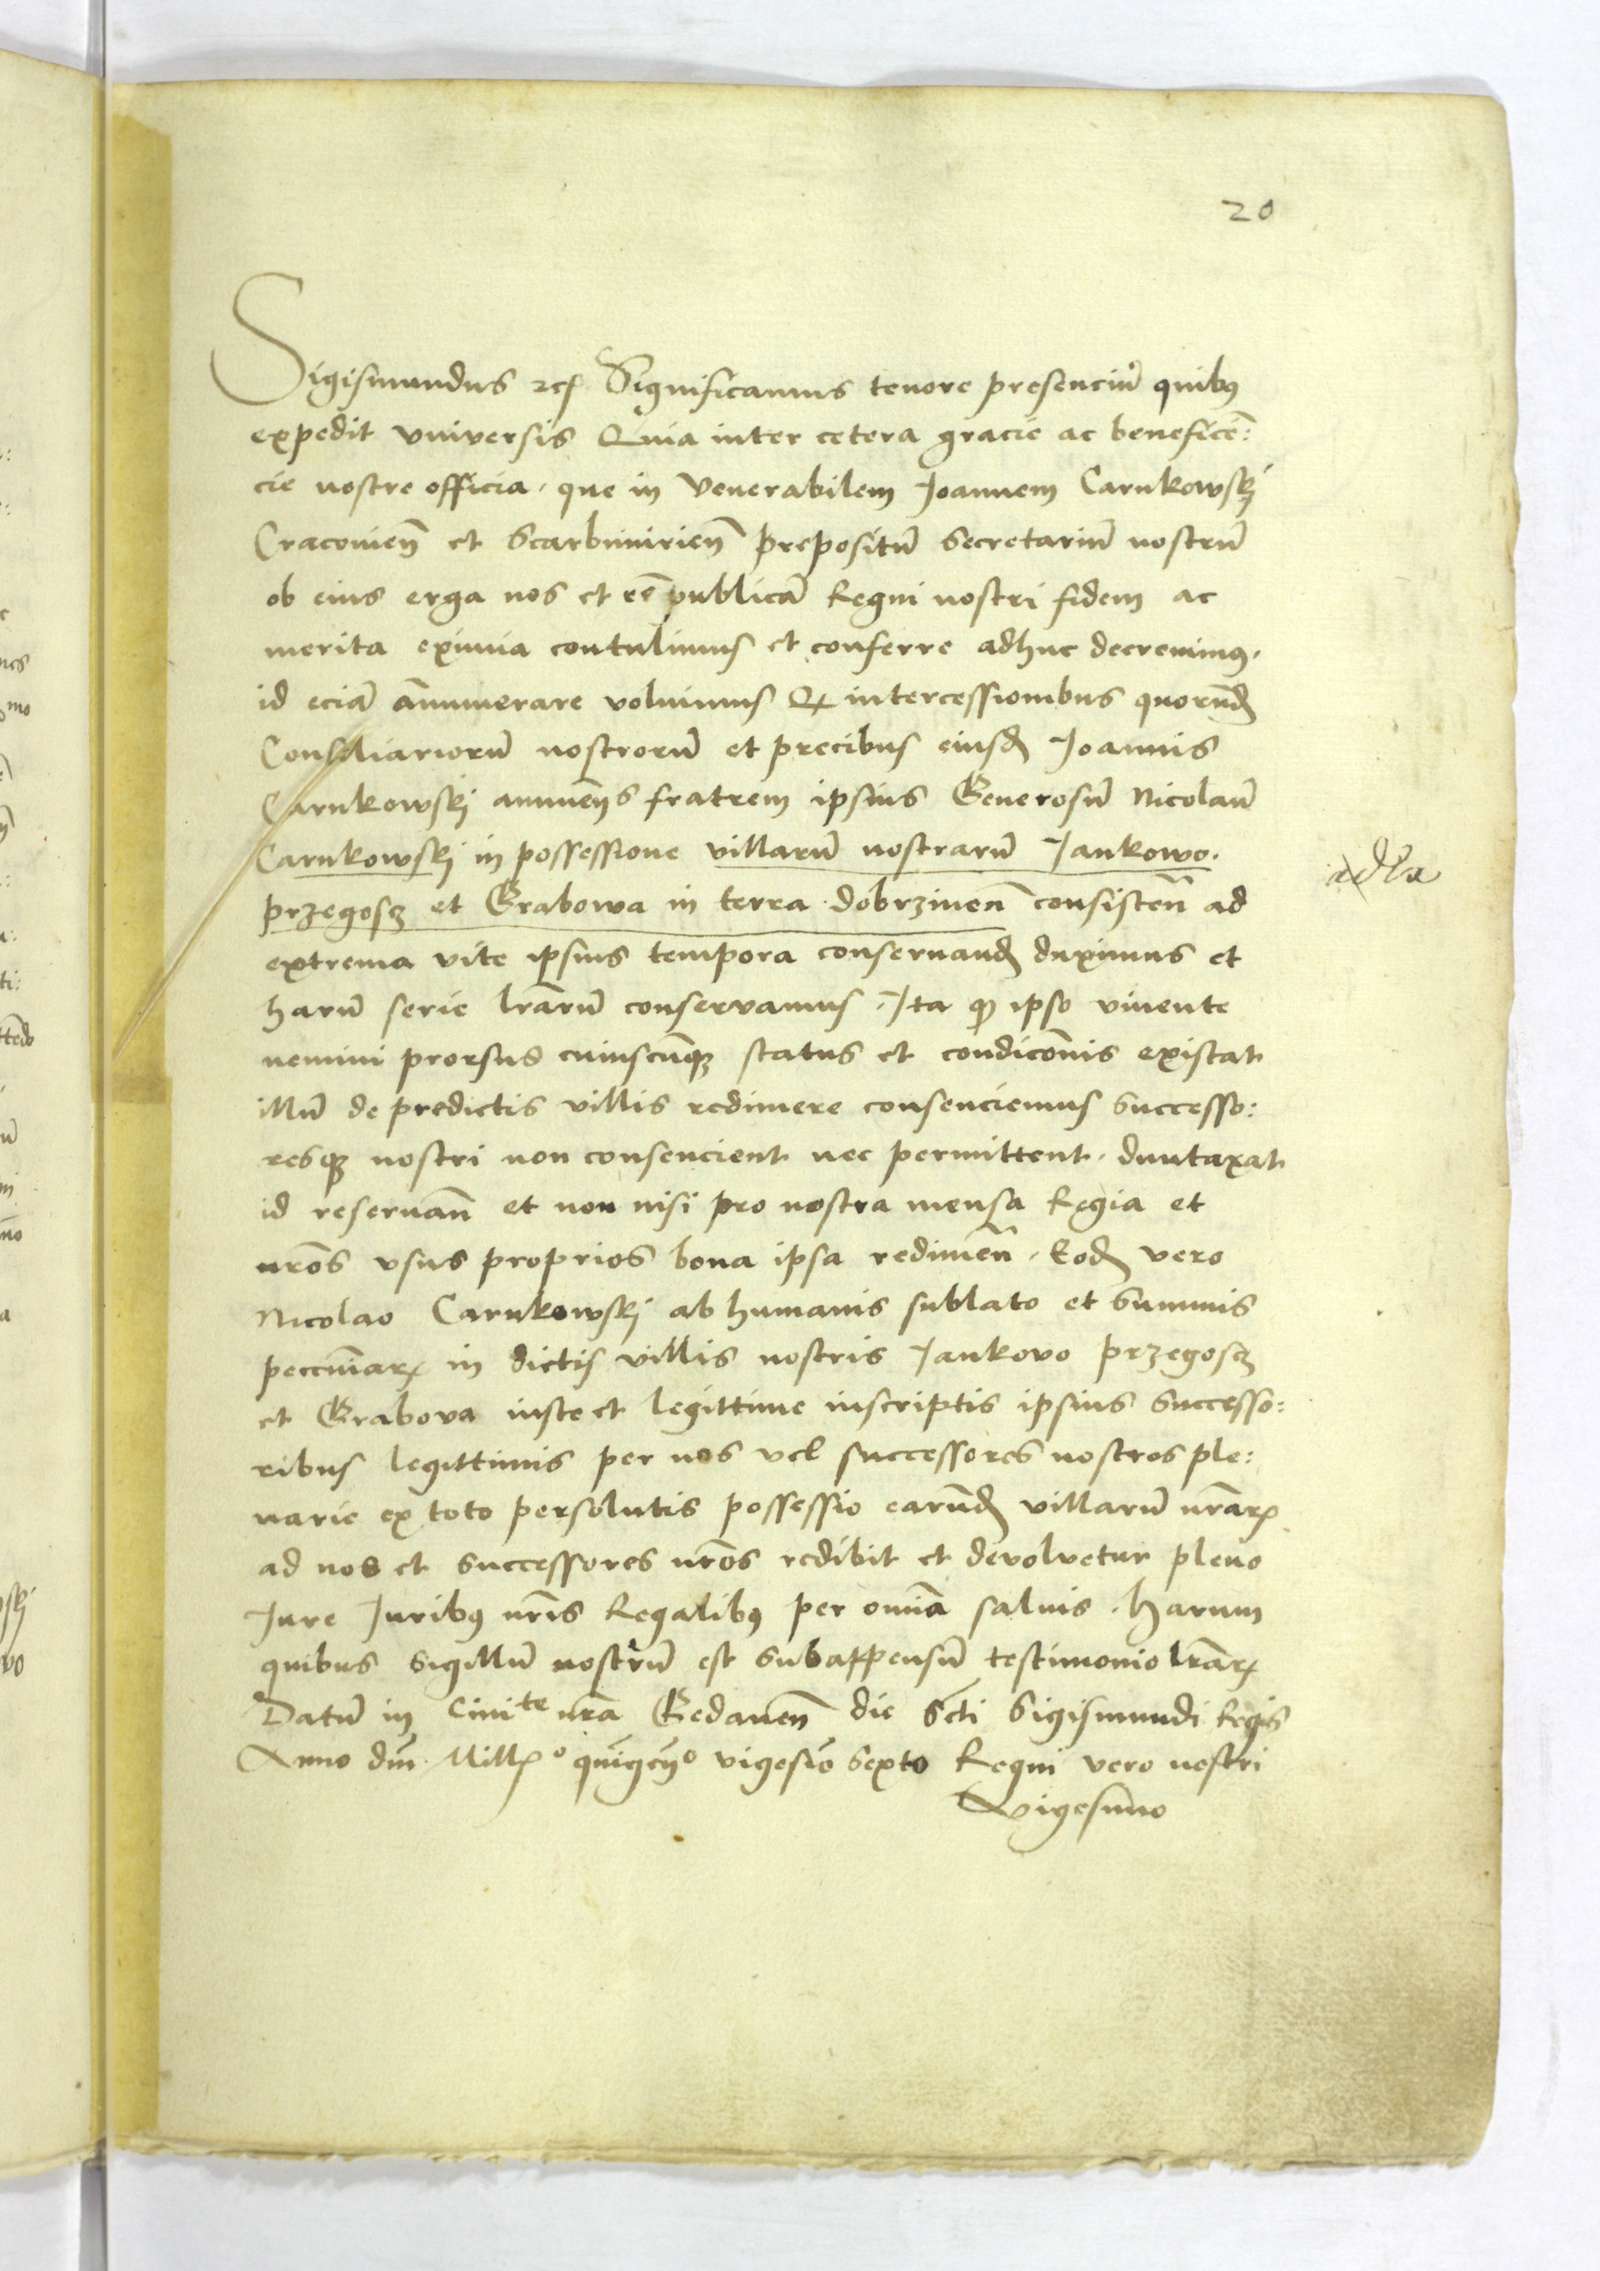 20
Sigismundus etc Significamus tenore presenciũ quibus
expedit vniversis Quia inter cetera gracie ac beneficẽ:
cie nostre officia, que in Venerabilem Joannem Carnkowskj
Cracovieñ et Scarbimirieñ prepositũ Secretariũ nostrũ
ob eius erga nos et rẽpublicã Regni nostri fidem ac
merita eximia contulimus et conferre adhuc decrevimus,
id eciã ãnumerare voluimus Q intercessionibus quorũd
Consiliariorũ nostrorũ et precibus eiusd Joannis
Carnkowskj annuẽtes fratrem ipsius Generosũ Nicolaũ
Carnkowskj in possessione villarũ nostrarũ Jankowo,
przegosz et Grabowa in terra dobrzineñ consisteñ ad
extrema vite ipsius tempora conseruand duximus et
harũ serie lrãrũ conservamus, Jta q ipso viuente
nemini prorsus cuiuscũqz status et condicõnis existat
illũ de predictis villis redimere consenciemus successo:
resqz nostri non consencient nec permittent, duntaxat
id reseruañ et non nisi pro nostra mensa Regia et
nrõs vsus proprios bona ipsa redimeñ, Eod vero
Nicolao Carnkowskj ab humanis sublato et Summis
peccuniar in dictis villis nostris Jankovo przegosz
et Grabova iuste et legittime inscriptis ipsius successo:
ribus legittimis per nos vel successores nostros ple:
narie ex toto persolutis possessio earũd villarũ nrãr
ad nos et successores nrõs redibit et devolvetur pleno
Jure Juribus nrĩs Regalibus per omĩa saluis, Harum
quibus Sigillũ nostrũ est Subappensũ testimonio lrãr
Datũ in Ciuite nrã Gedaneñ die Scti Sigismundi Regis
Anno dnĩ Millo quĩgẽo vigesiõ Sexto Regni vero nostri
Vigesimo